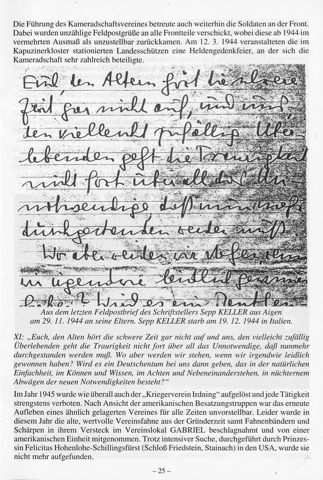 Die Führung des Kameradschaftsvereines betreute auch weiterhin die Soldaten an der Front.
Dabei wurden unzählige Feldpostgrüße an alle Frontteile verschickt, wobei diese ab 1944 im
vermehrten Ausmaß als unzustellbar zurückkamen. Am 12. 3. 1944 veranstalteten die im
Kapuzinerkloster stationierten Landesschützen eine Heldengedenkfeier, an der sich die
Kameradschaft sehr zahlreich beteiligte.
Euch, den Alten hört die schwere
Zeit gar nicht auf, und uns,
den vielleicht zufällig Über-
lebenden geht die Traurigkeit
nicht fort über all das Un-
notwendige, daß nunmehr
durchgestanden werden muß.
Wo aber werden wir stehen, wenn
wir irgendwie leidlich gewonnen
haben? Wird es ein Deutschtum
Aus dem letzten Feldpostbrief des Schriftstellers Sepp KELLER aus Aigen
am 29. 11. 1944 an seine Eltern. Sepp KELLER starb am 19. 12. 1944 in Italien.
XI: „Euch, den Alten hört die schwere Zeit gar nicht auf und uns, den vielleicht zufällig
Überlebenden geht die Traurigkeit nicht fort über all das Unnotwendige, daß nunmehr
durchgestanden werden muß. Wo aber werden wir stehen, wenn wir irgendwie leidlich
gewonnen haben? Wird es ein Deutschtum bei uns dann geben, das in der natürlichen
Einfachheit, im Können und Wissen, im Achten und Nebeneinanderstehen, in nüchternem
Abwägen der neuen Notwendigkeiten besteht?“
Im Jahre 1945 wurde wie überall auch der „Kriegerverein Irdning“ aufgelöst und jede Tätigkeit
strengstens verboten. Nach Ansicht der amerikanischen Besatzungstruppen war das erneute
Aufleben eines ähnlich gelagerten Vereines für alle Zeiten unvorstellbar. Leider wurde in
diesem Jahr die alte, wertvolle Vereinsfahne aus der Gründerzeit samt Fahnenbändern und
Schärpen in ihrem Versteck im Vereinslokal GABRIEL beschlagnahmt und von einer
amerikanischen Einheit mitgenommen. Trotz intensiver Suche, durchgeführt durch Prinzes-
sin Felicitas Hohenlohe-Schillingsfürst (Schloß Friedstein, Stainach) in den USA, wurde sie
nicht mehr aufgefunden.
– 25 –